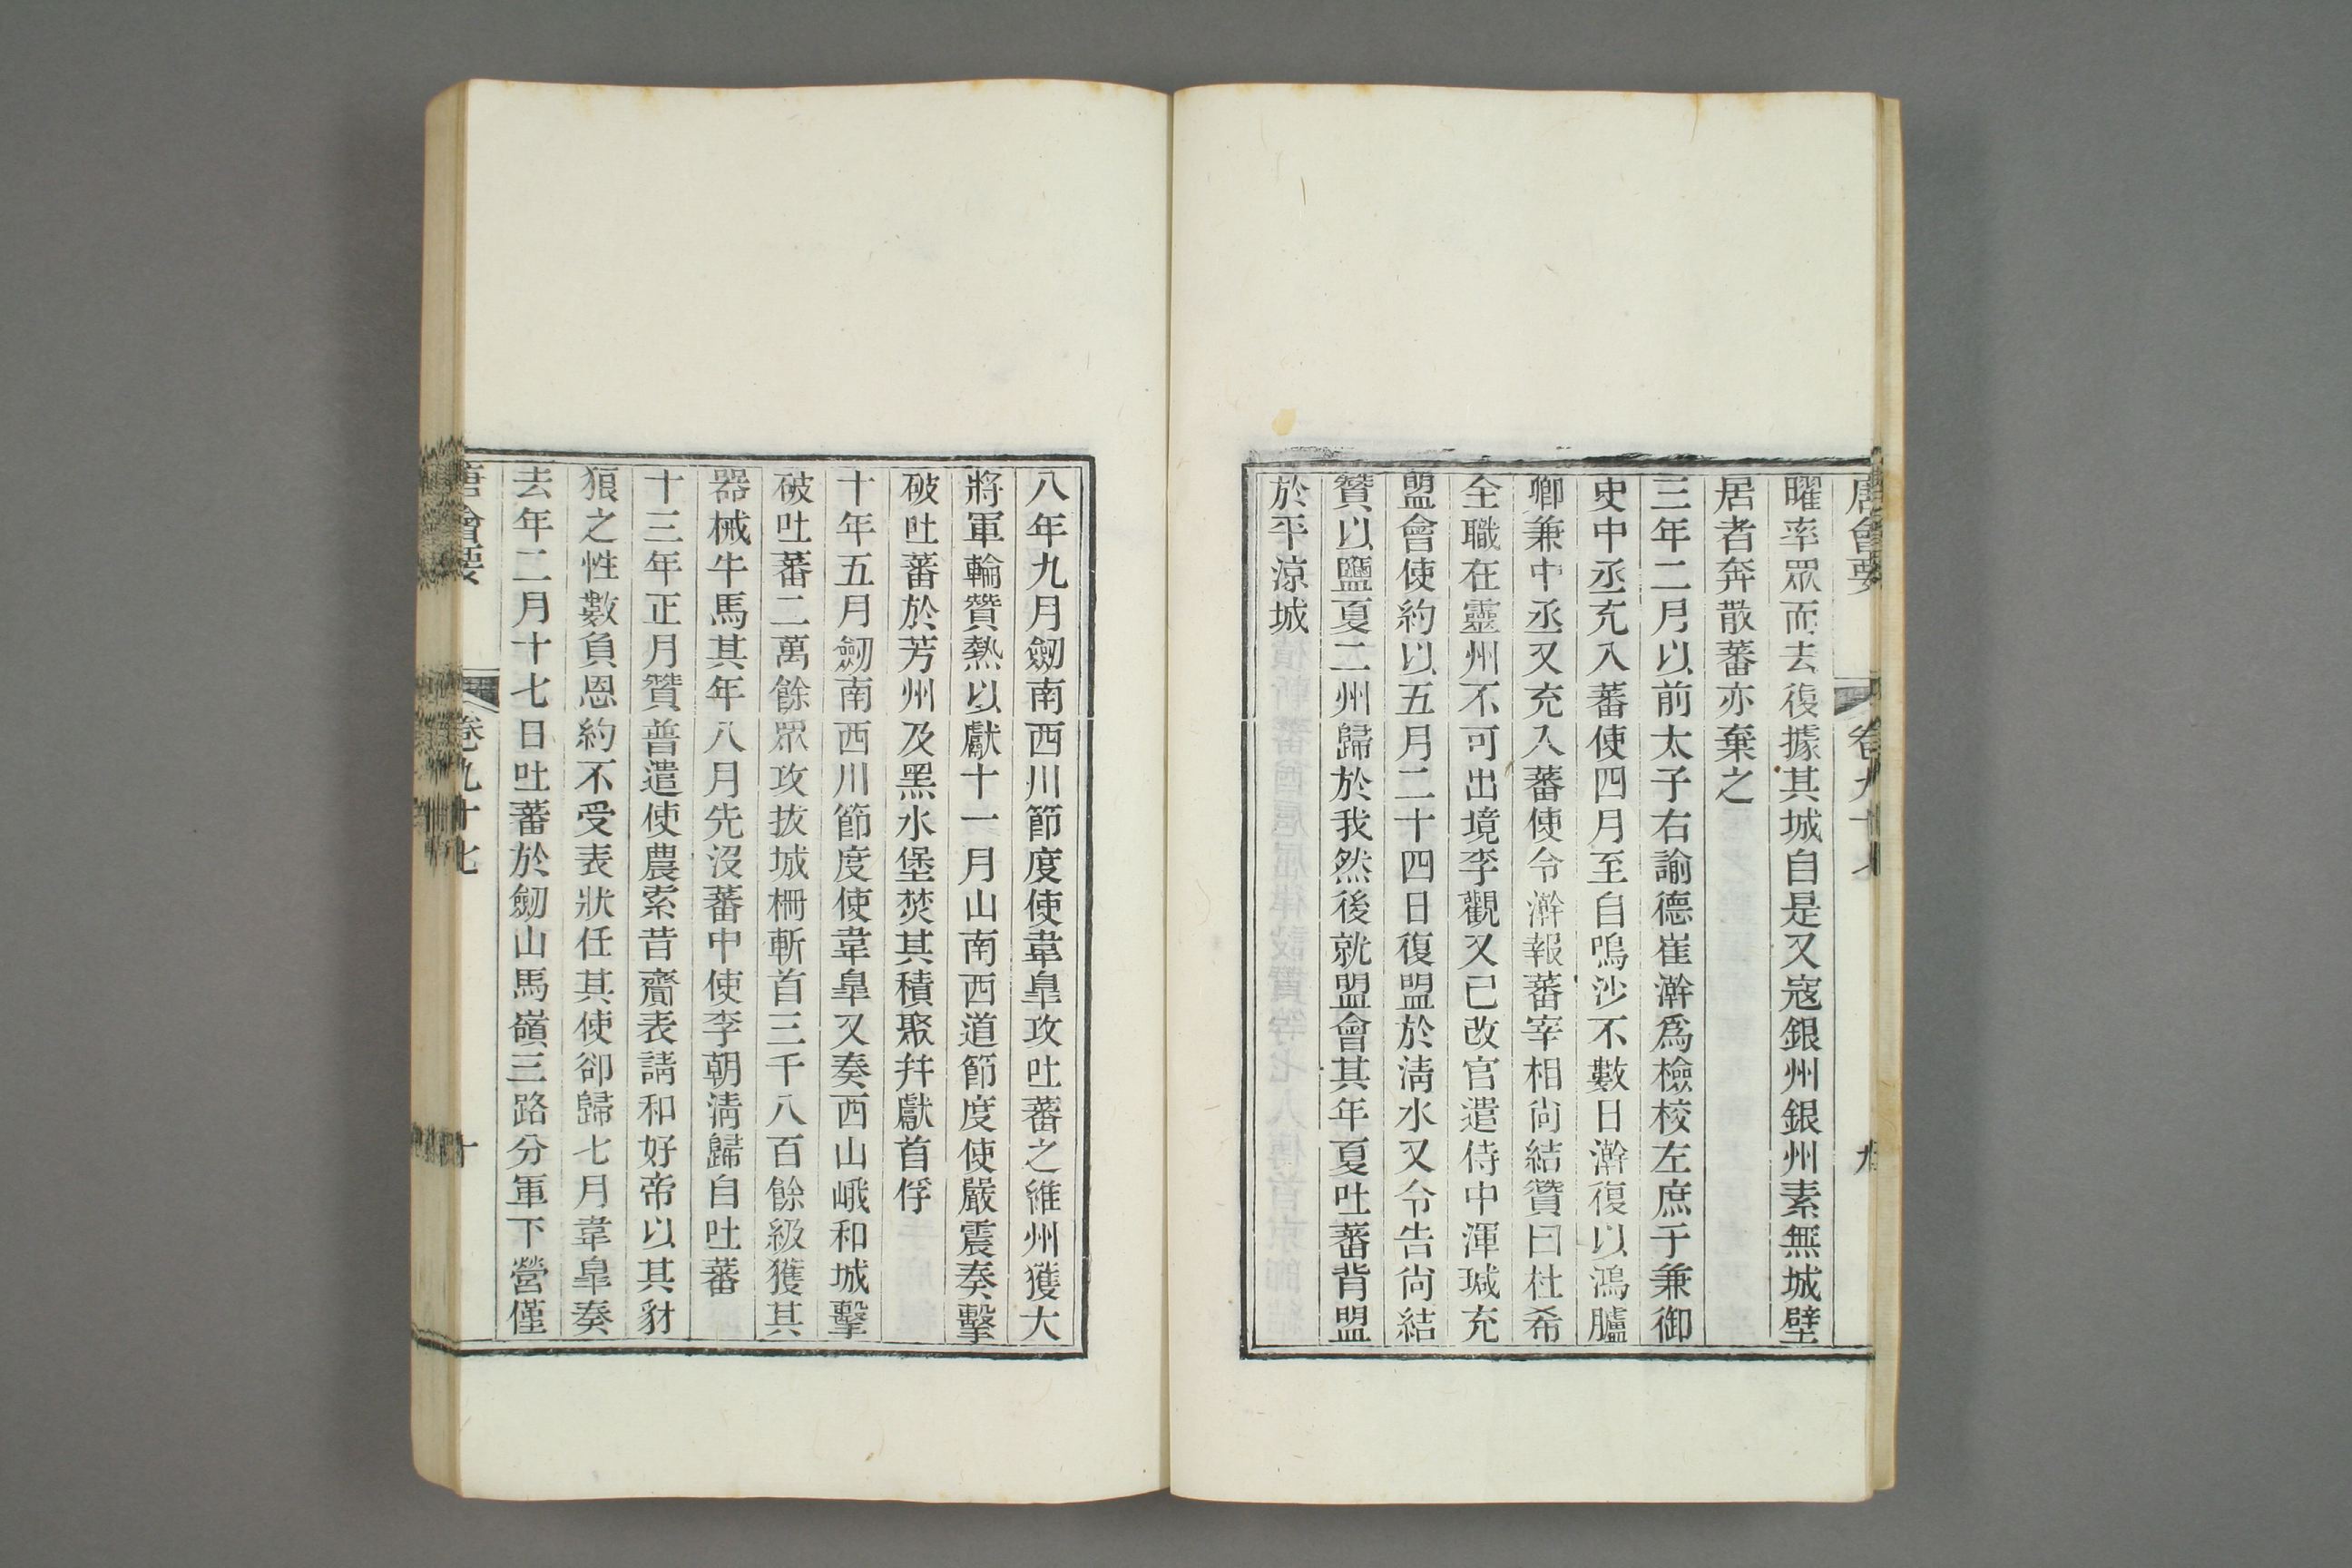 唐會要 卷九十七 九
曜率眾而去復據其城自是又寇銀州銀州素無城壁
居者奔散蕃亦棄之
三年二月以前太子右諭德崔澣爲檢校左庶子兼御
史中丞充入蕃使四月至自鳴沙不數日澣復以鴻臚
卿兼中丞又充入蕃使令澣報蕃宰相尙結贊曰杜希
全職在靈州不可出境李觀又已改官遣侍中渾瑊充
盟會使約以五月二十四日復盟於淸水又令告尙結
贊以鹽夏二州歸於我然後就盟會其年夏吐蕃背盟
於平涼城
八年九月劒南西川節度使韋臯攻吐蕃之維州獲大
將軍輪贊熱以獻十一月山南西道節度使嚴震奏擊
破吐蕃於芳州及黑水堡焚其積聚幷獻首俘
十年五月劒南西川節度使韋臯又奏西山峨和城擊
破吐蕃二萬餘眾攻拔城柵斬首三千八百餘級獲其
器械牛馬其年八月先沒蕃中使李朝淸歸自吐蕃
十三年正月贊普遣使農索昔齎表請和好帝以其豺
狼之性數負恩約不受表狀任其使卻歸七月韋臯奏
去年二月十七日吐蕃於劒山馬嶺三路分軍下營僅
唐會要 卷九十七 十